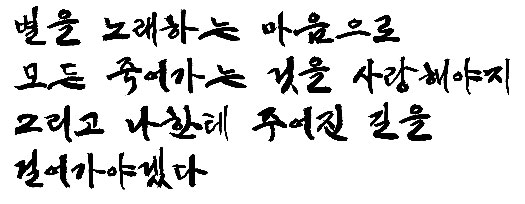 별을 노래하는 마음으로
모든 죽어가는 것을 사랑해야지
그리고 나한테 주어진 길을
걸어가야겠다